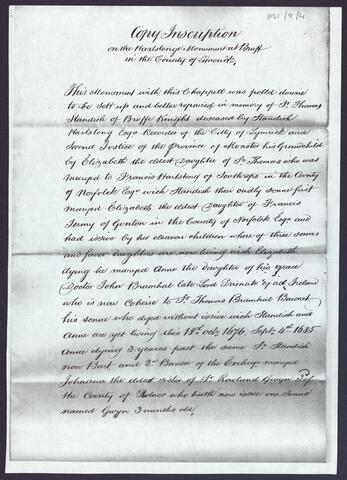 PSI/9/4
Copy Inscription
on the Hartslonge Monument at Bruff
in the County of Limerick,
This Monument with this Chappell was pulld downe
to be sett up and better repaired in memory of Sr. Thomas
Standish of Bruffe Knight deceased by Standish
Hartslong Esqr. Recorder of the Citty of Lymrick and
Second Justice of the Province of Monster his Grandchild
by Elizabeth the eldest Daughter of Sr. Thomas who was
maryed to Francis Hartslong of Southrepe in the County
of Norfolck Esqr. wich Standish their oadly sonne first
maryed Elizabeth the eldest Daughter of Francis
Jermy of Gunton in the County of Norfolck Esqr. and
had issue by her eleaven children where of three sonns
and fower daughters are now living wich Elizabeth
dying he maryed Anne the daughter of his grace
Doctor John Bramhal late Lord Primate of all Ireland
who is now Coheire to Sr. Thomas Bramhal Baronet
his sonne who dyed without issue wich Standish and
Anne are yet living this 18th. octr. 1676, Septr. 4th. 1685
Anne dying 3 yeares past the same Sr. Standish
now Bart. and 2nd. Baron of the Excheqr. maryed
Johanna the eldest sister of Sr. Rowland Gwyn of
the County of Radnor who hath now issue one Sonne
named Gwyn 3 months old,